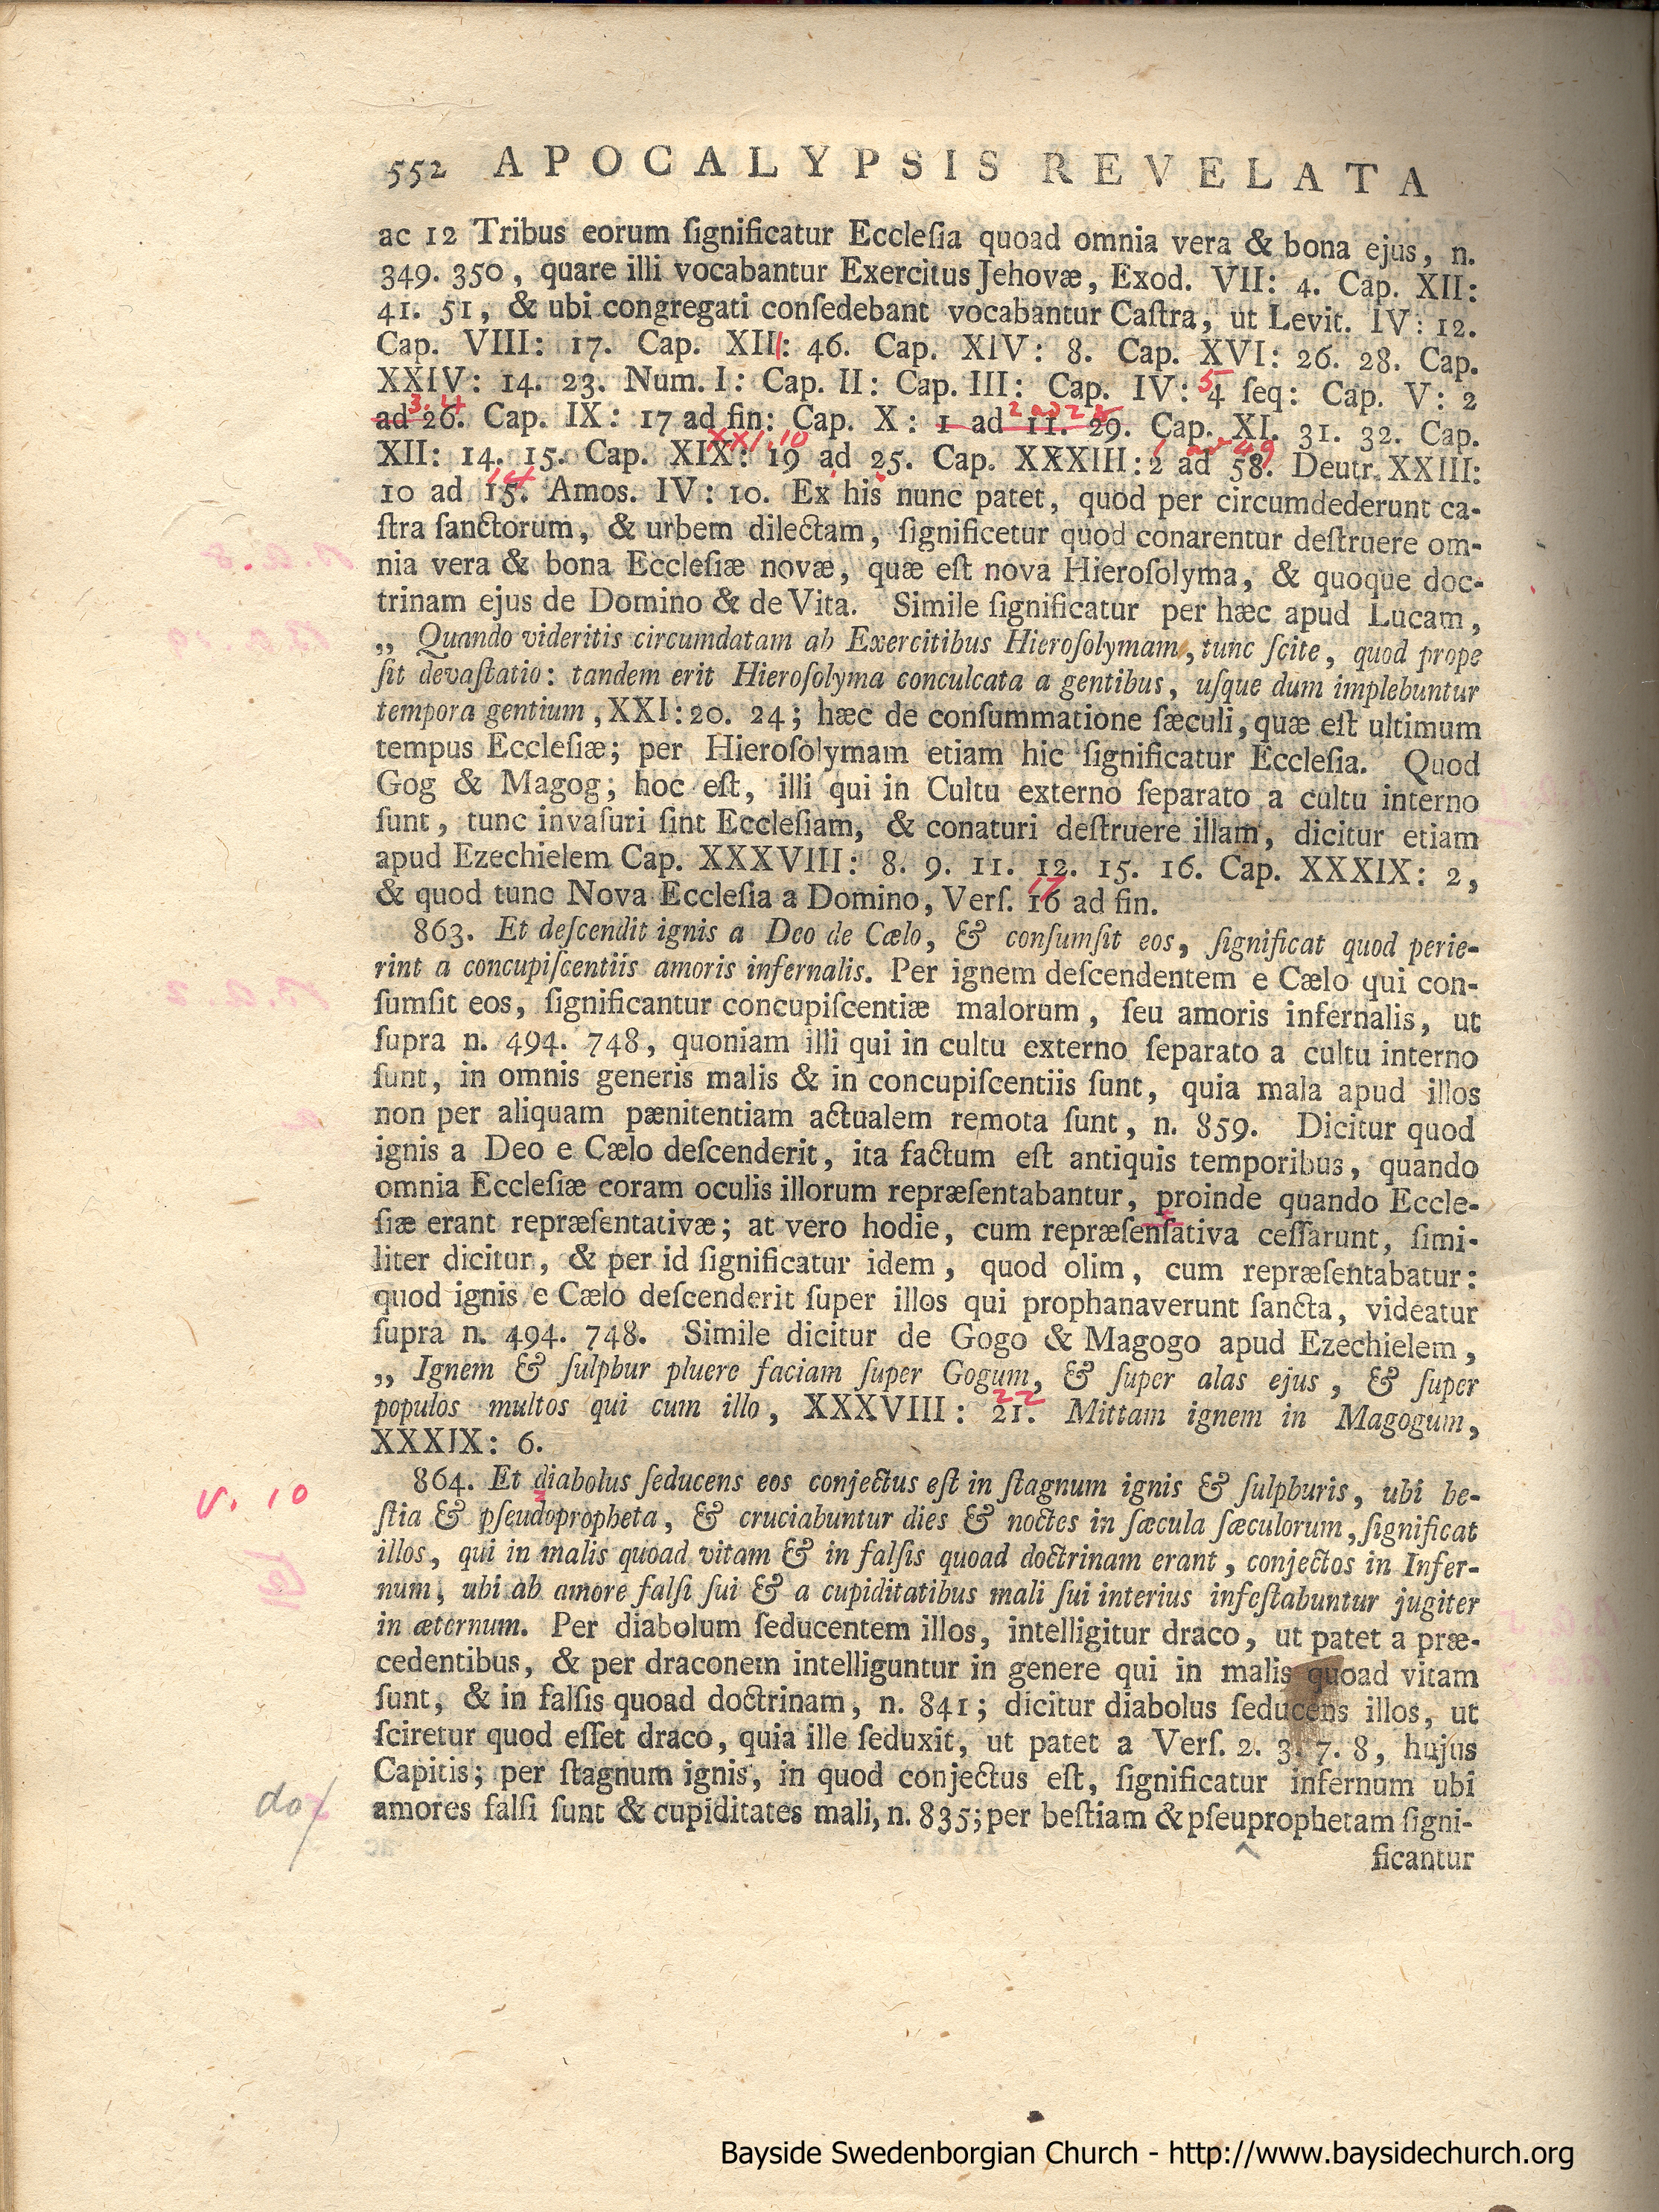 552 APOCALYPSIS REVELATA
ac 12 Tribus eorum ſignificatur Eccleſia quoad omnia vera & bona ejus, n.
349. 350, quare illi vocabantur Exercitus Jehovæ, Exod. VII: 4. Cap. XII:
41. 51, & ubi congregati conſedebant vocabantur Caſtra, ut Levit. IV: 12.
Cap. VIII: 17. Cap. XIII: 46. Cap. XIV: 8. Cap. XVI: 26. 28. Cap.
XXIV: 14. 23. Num. I: Cap. II: Cap. III: Cap. IV: 4 ſeq: Cap. V: 2
5
ad 26. Cap. IX: 17 ad fin: Cap. X: 1 ad 11. 29. Cap. XI. 31. 32. Cap.
3. 4
XII: 14. 15. Cap. XIX: 19 ad 25. Cap. XXXIII: 2 ad 58. Deutr. XXIII:
XXI. 10
49
10 ad 15. Amos. IV: 10. Ex his nunc patet, quod per circumdederunt ca-
14
ſtra ſanctorum, & urbem dilectam, ſignificetur quod conarentur deſtruere om-
nia vera & bona Eccleſiæ novæ, quæ eſt nova Hieroſolyma, & quoque doc-
trinam ejus de Domino & de Vita. Simile ſignificatur per hæc apud Lucam,
„ Quando videritis circumdatam ab Exercitibus Hieroſolymam, tunc ſcite, quod prope
ſit devaſtatio: tandem erit Hieroſolyma conculcata a gentibus, uſque dum implebuntur
tempora gentium, XXI: 20. 24; hæc de conſummatione ſæculi, quæ eſt ultimum
tempus Eccleſiæ; per Hieroſolymam etiam hic ſignificatur Eccleſia. Quod
Gog & Magog; hoc eſt, illi qui in Cultu externo ſeparato a cultu interno
ſunt, tunc invaſuri ſint Eccleſiam, & conaturi deſtruere illam, dicitur etiam
apud Ezechielem Cap. XXXVIII: 8. 9. 11. 12. 15. 16. Cap. XXXIX: 2,
& quod tunc Nova Eccleſia a Domino, Verſ. 16 ad fin.
17
863. Et deſcendit ignis a Deo de Cælo, & conſumſit eos, ſignificat quod perie-
rint a concupiſcentiis amoris infernalis. Per ignem deſcendentem e Cælo qui con-
ſumſit eos, ſignificantur concupiſcentiæ malorum, ſeu amoris infernalis, ut
ſupra n. 494. 748, quoniam illi qui in cultu externo ſeparato a cultu interno
ſunt, in omnis generis malis & in concupiſcentiis ſunt, quia mala apud illos
non per aliquam pænitentiam actualem remota ſunt, n. 859. Dicitur quod
ignis a Deo e Cælo deſcenderit, ita factum eſt antiquis temporibus, quando
omnia Eccleſiæ coram oculis illorum repræſentabantur, proinde quando Eccle-
ſiæ erant repræſentativæ; at vero hodie, cum repræſenſativa ceſſarunt, ſimi-
liter dicitur, & per id ſignificatur idem, quod olim, cum repræſentabatur:
quod ignis e Cælo deſcenderit ſuper illos qui prophanaverunt ſancta, videatur
ſupra n. 494. 748. Simile dicitur de Gogo & Magogo apud Ezechielem,
„ Ignem & ſulphur pluere faciam ſuper Gogum, & ſuper alas ejus, & ſuper
populos multos qui cum illo, XXXVIII: 21. Mittam ignem in Magogum,
22
XXXIX: 6.
864. Et diabolus ſeducens eos conjectus eſt in ſtagnum ignis & ſulphuris, ubi be-
v. 10
ſtia & pſeudopropheta, & cruciabuntur dies & noctes in ſæcula ſæculorum, ſignificat
illos, qui in malis quoad vitam & in falſis quoad doctrinam erant, conjectos in Infer-
num, ubi ab amore falſi ſui & a cupiditatibus mali ſui interius infeſtabuntur jugiter
in æternum. Per diabolum ſeducentem illos, intelligitur draco, ut patet a præ-
cedentibus, & per draconem intelliguntur in genere qui in malis quoad vitam
ſunt, & in falſis quoad doctrinam, n. 841; dicitur diabolus ſeducens illos, ut
ſciretur quod eſſet draco, quia ille ſeduxit, ut patet a Verſ. 2. 3. 7. 8, hujus
Capitis; per ſtagnum ignis, in quod conjectus eſt, ſignificatur infernum ubi
do/
amores falſi ſunt & cupiditates mali, n. 835; per beſtiam & pſeuprophetam ſigni-
ficantur
Bayside Swedenborgian Church - http://www.baysidechurch.org